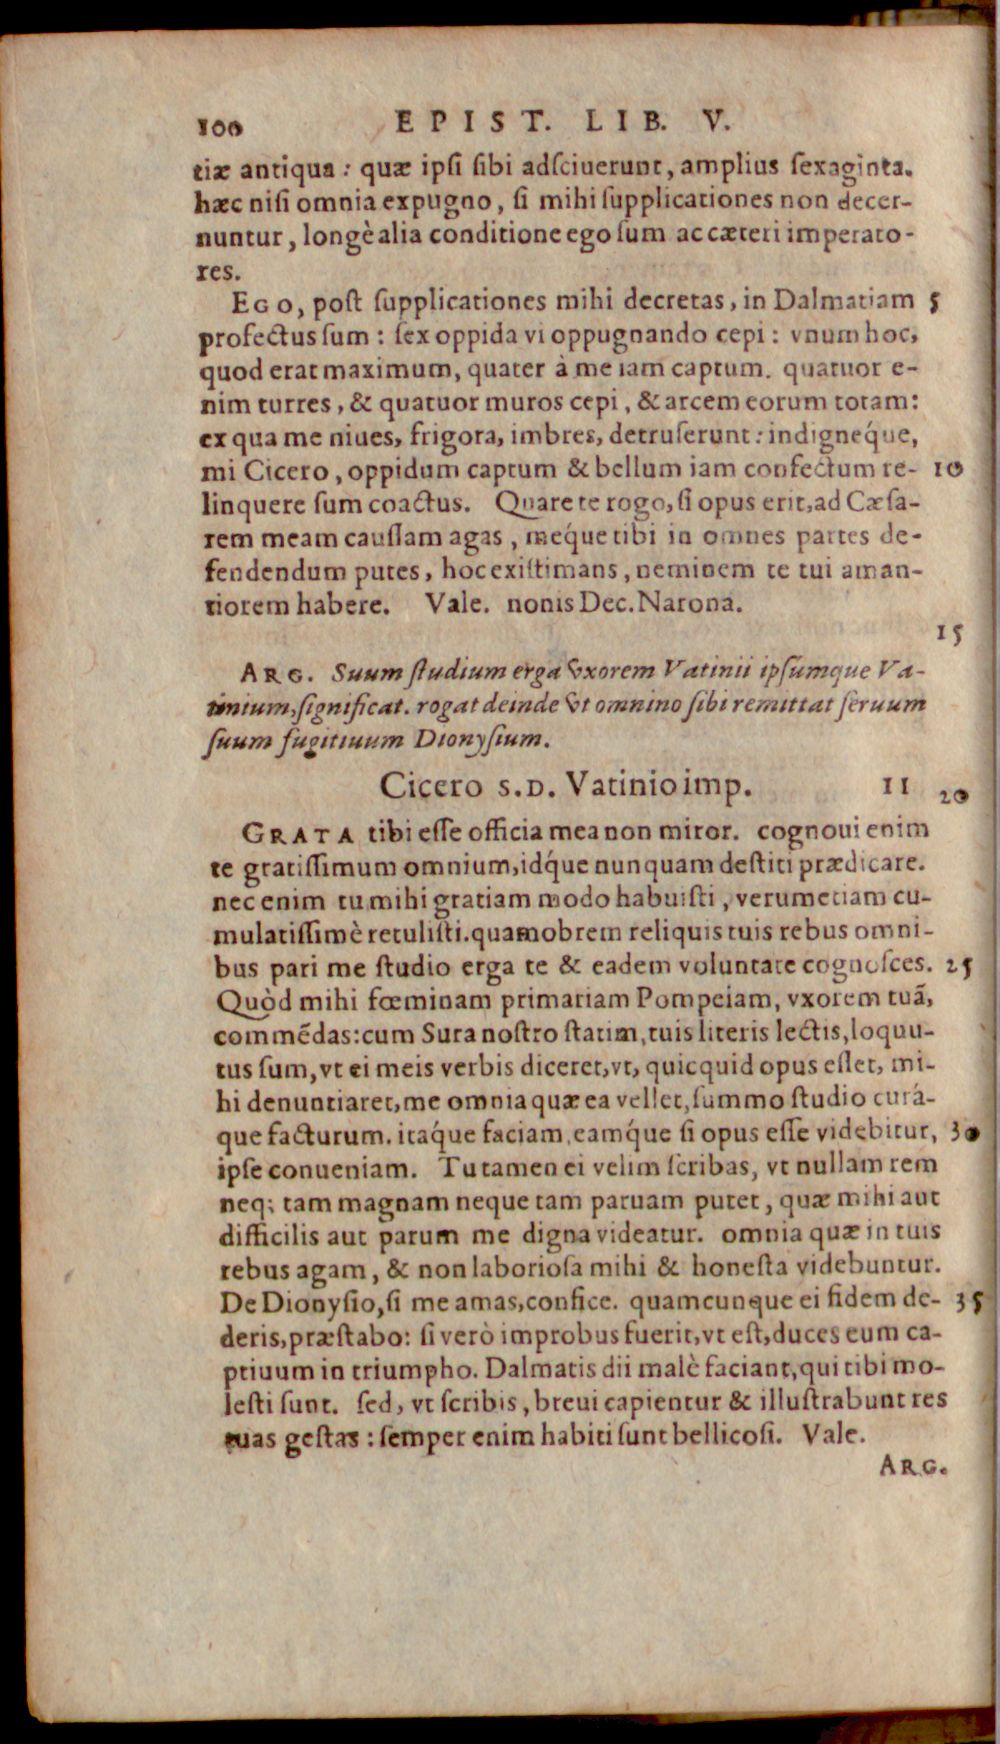 100 EPIST. LIB. V.
tiæ antiqua : quæ ipſi ſibi adſciuerunt, amplius ſexaginta.
hæc niſi omnia expugno, ſi mihi ſupplicationes non decer-
nuntur, longè alia conditione ego ſum ac cæteri imperato-
res.
EGO, poſt ſupplicationes mihi decretas, in Dalmatiam 5
profectus ſum : ſex oppida vi oppugnando cepi : vnum hoc,
quod erat maximum, quater à me iam captum. quatuor e-
nim turres, & quatuor muros cepi, & arcem eorum totam:
ex qua me niues, frigora, imbres, detruſerunt : indignéque,
mi Cicero, oppidum captum & bellum iam confectum re- 10
linquere ſum coactus. Quare te rogo, ſi opus erit, ad Cæſa-
rem meam cauſſam agas, méque tibi in omnes partes de-
fendendum putes, hoc exiſtimans, neminem te tui aman-
tiorem habere. Vale. nonis Dec. Narona.
15
ARG. Suum ſtudium erga vxorem Vatinii ipſúmque Va-
tinium, ſignificat. rogat deinde vt omnino ſibi remittat ſeruum
ſuum fugitiuum Dionyſium.
Cicero S.D. Vatinio imp. 11 20
GRATA tibi eſſe officia mea non miror. cognoui enim
te gratiſſimum omnium, idq́ue nunquam deſtiti prædicare.
nec enim tu mihi gratiam modo habuiſti, verumetiam cu-
mulatiſſimè retuliſti. quamobrem reliquis tuis rebus omni-
bus pari me ſtudio erga te & eadem voluntate cognoſces. 25
Quòd mihi fœminam primariam Pompeiam, vxorem tuã,
commẽdas: cum Sura noſtro ſtatim, tuis literis lectis, loquu-
tus ſum, vt ei meis verbis diceret, vt, quicquid opus eſſet, mi-
hi denuntiaret, me omnia quæ ea vellet, ſummo ſtudio curá-
que facturum. itáque faciam, eamq́ue ſi opus eſſe videbitur, 30
ipſe conueniam. Tu tamen ei velim ſcribas, vt nullam rem
neq; tam magnam neque tam paruam putet, quæ mihi aut
difficilis aut parum me digna videatur. omnia quæ in tuis
rebus agam, & non laborioſa mihi & honeſta videbuntur.
De Dionyſio, ſi me amas, confice. quamcunque ei fidem de- 35
deris, præſtabo: ſi verò improbus fuerit, vt eſt, duces eum ca-
ptiuum in triumpho. Dalmatis dii malè faciant, qui tibi mo-
leſti ſunt. ſed, vt ſcribis, breui capientur & illuſtrabunt res
tuas geſtas : ſemper enim habiti ſunt bellicoſi. Vale.
ARG.